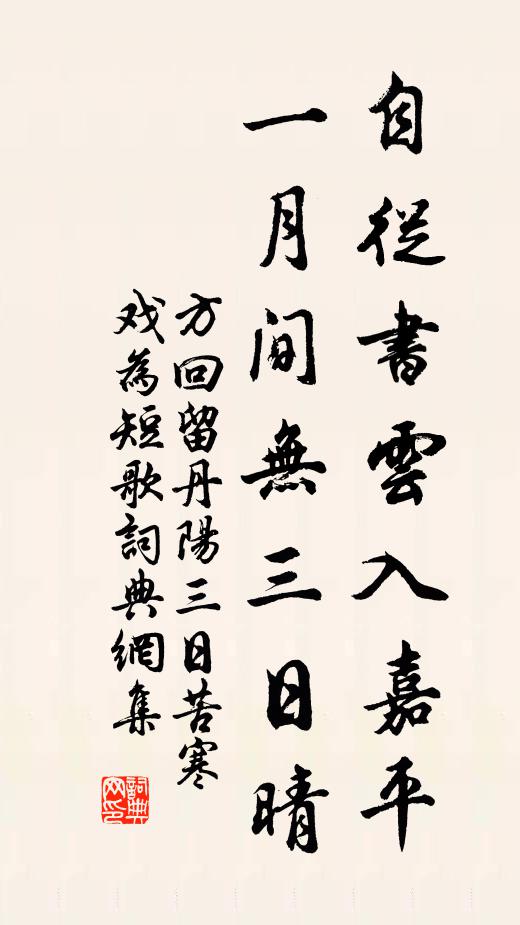 自從書雲入嘉平
一月間無三日晴
方回留丹陽三日苦寒
戏為短歌詞典網集
詞典
网印